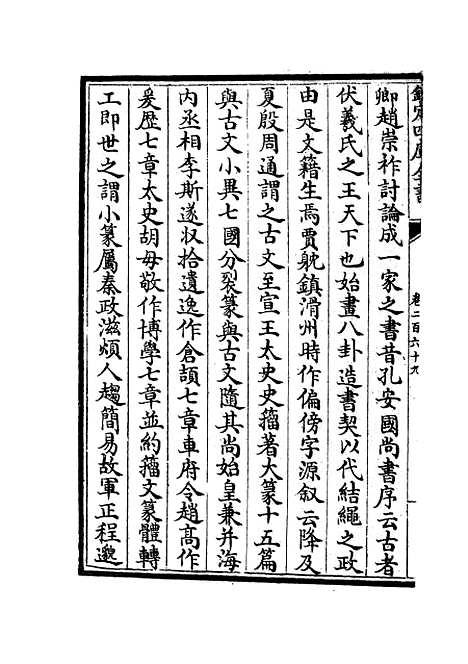 欽定四庫全書
卷二百六十九
卿趙崇祚討論成一家之書昔孔安國尚書序云古者
伏羲氏之王天下也始畫八卦造書契以代結繩之政
由是文籍生焉賈躭鎮滑州時作偏傍字源叙云降及
夏殷周通謂之古文至宣王太史史籀著大篆十五篇
與古文小異七國分裂篆與古文隨其尚始皇兼并海
内丞相李斯遂収拾遺逸作倉頡七章車府令趙高作
爰歴七章太史胡毋敬作博學七章並約籀文篆體轉
工即世之謂小篆屬秦政滋煩人趨簡易故軍正程邈